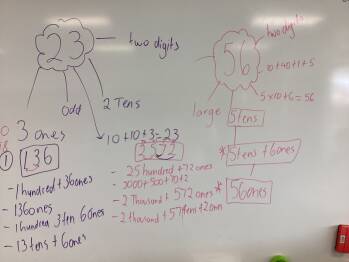 23
two digits
Odd
2 Tens
3 ones
10+10+3=23
136
- 1 hundred + 36 ones
- 136 ones
- 1 hundred 3 ten 6 ones
- 13 tens + 6 ones
2572
- 25 hundred + 72 ones
- 2000 + 500 + 70 + 2
- 2 Thousand + 572 ones
- 2 thousand + 57 tens + 2 ones
56
two digits
10+40+1+5
5×10+6=56
large
5 tens
* 5 tens + 6 ones
* 56 ones